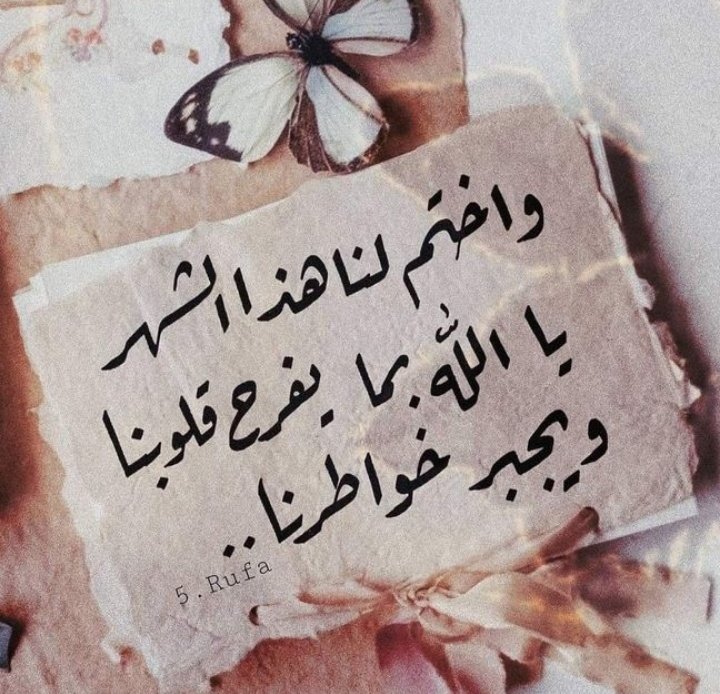 واختم لنا هذا الشهر
يا الله بما يفرح قلوبنا
ويجبر خواطرنا..
5.Rufa